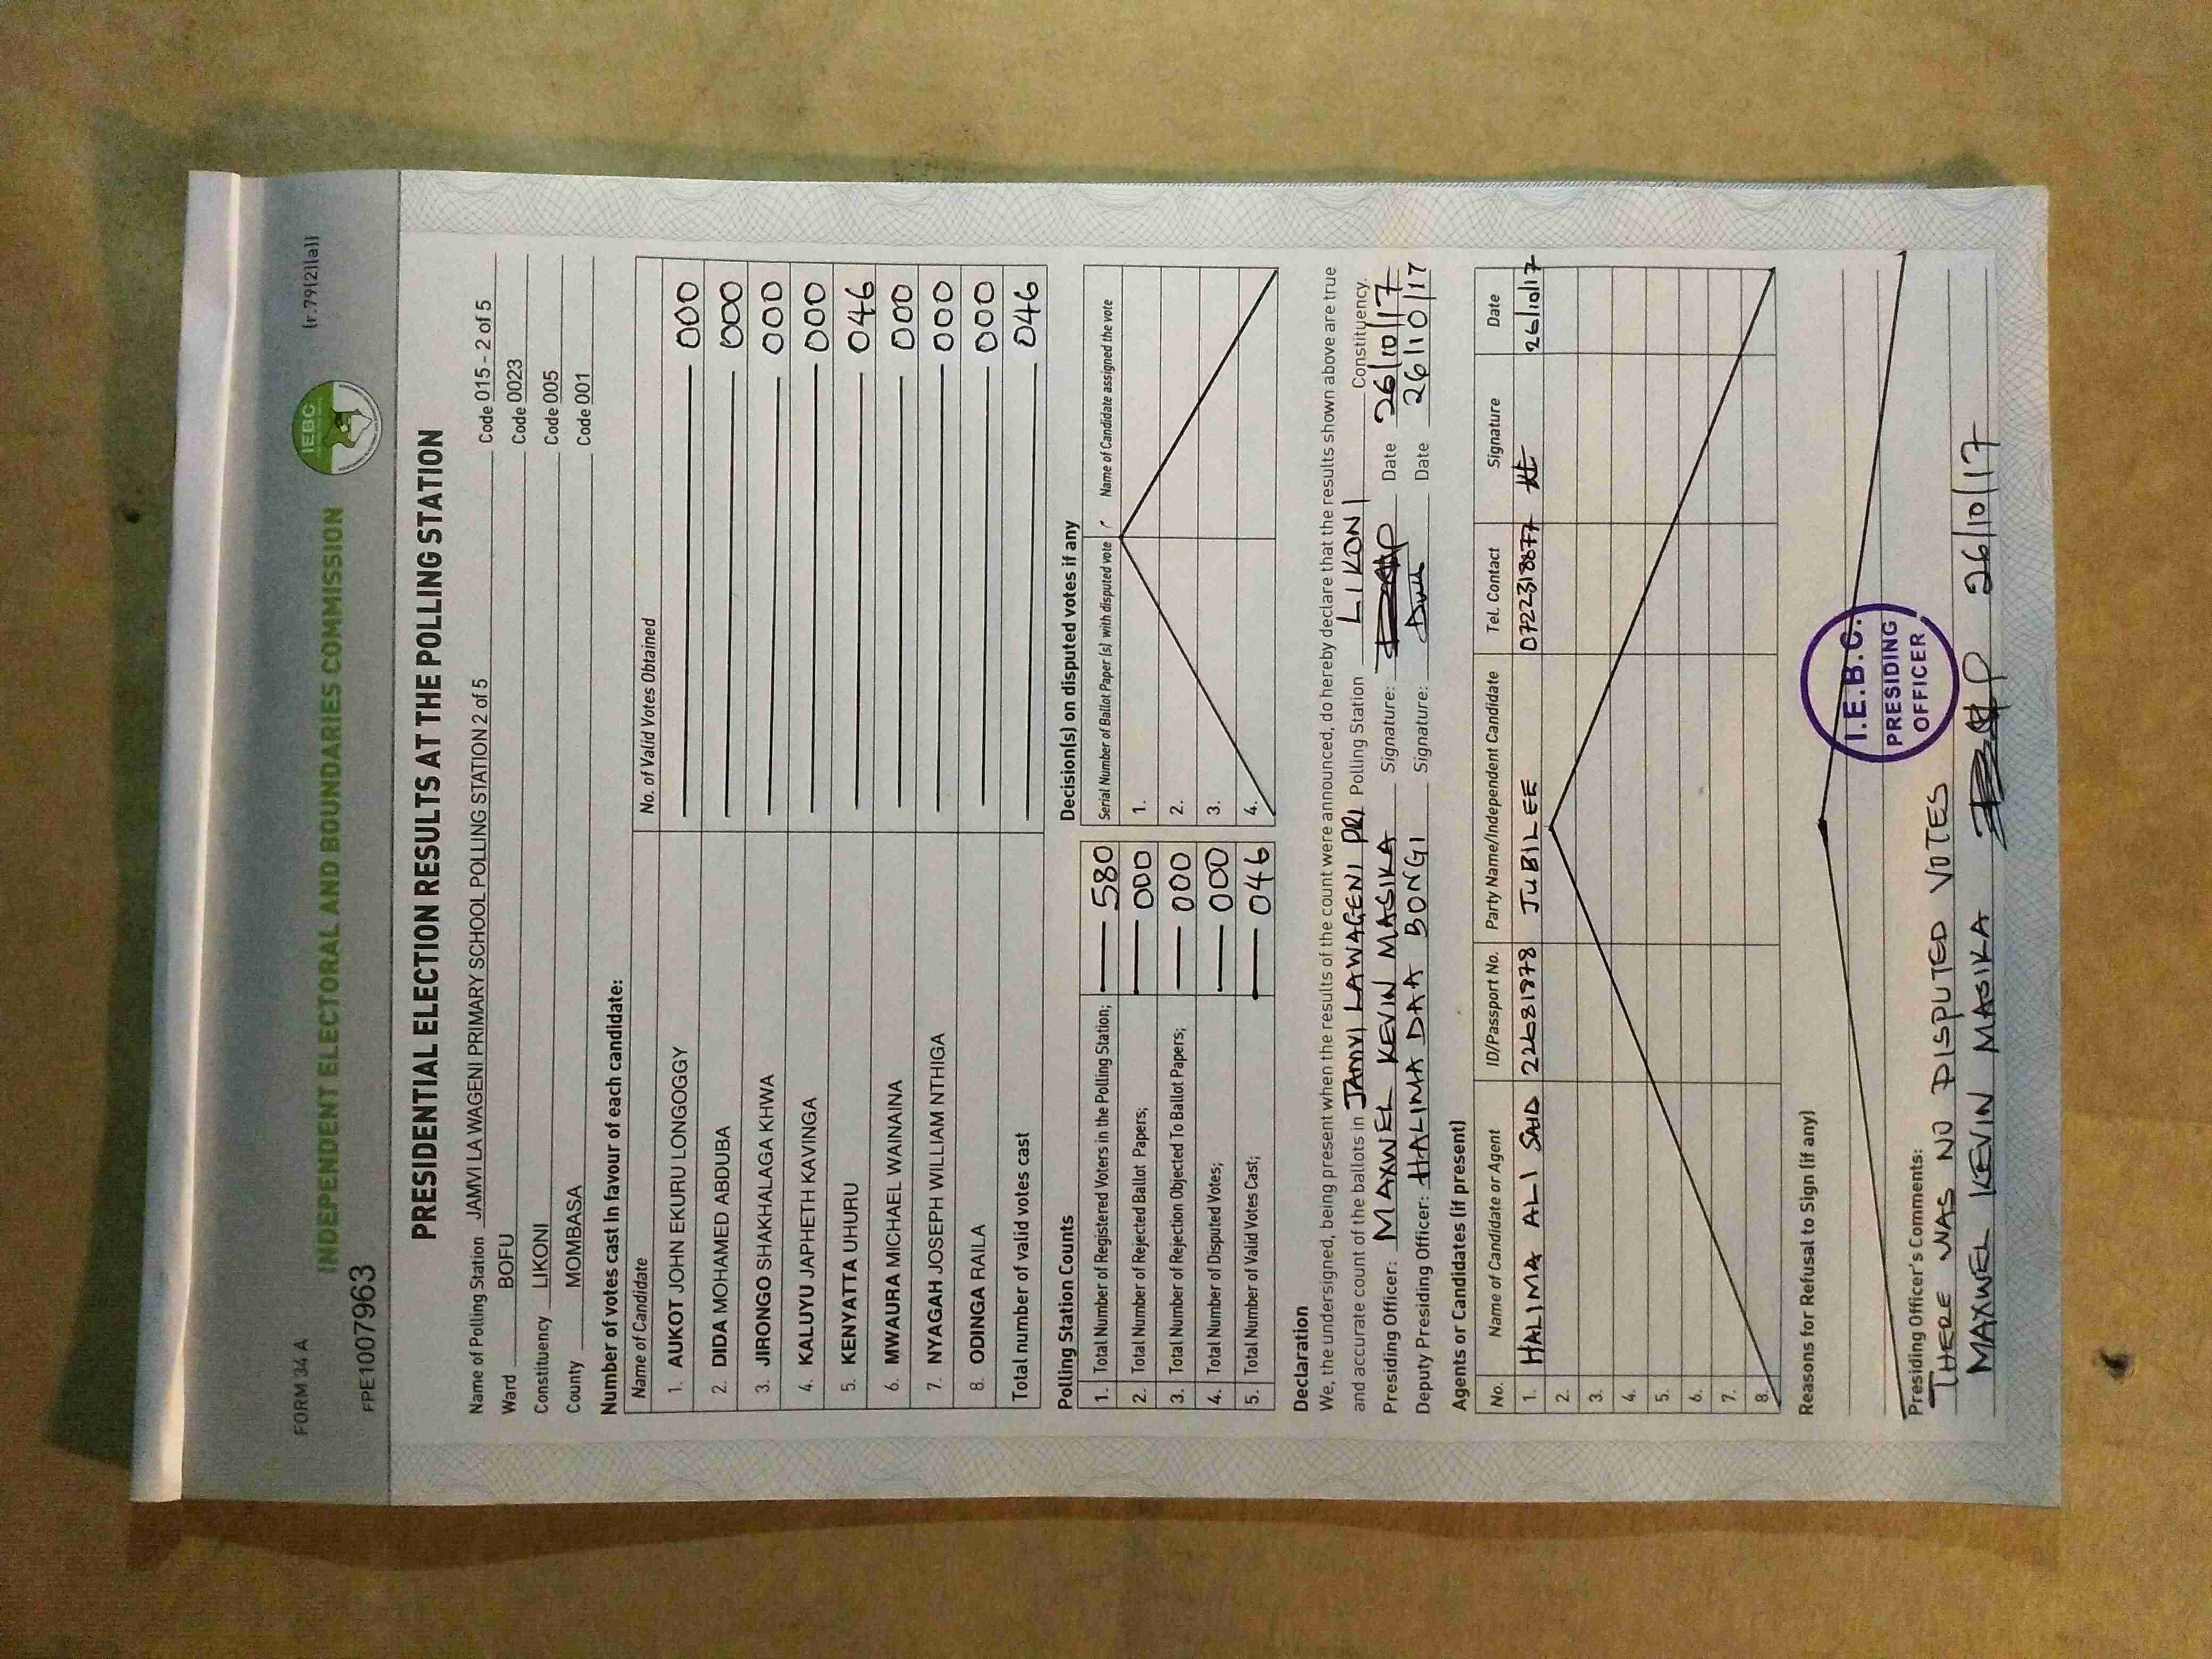 FORM 34 A
(r.79(2)(a))
INDEPENDENT ELECTORAL AND BOUNDARIES COMMISSION
IEBC
FPE1007963
PRESIDENTIAL ELECTION RESULTS AT THE POLLING STATION
Name of Polling Station JAMVI LA WAGENI PRIMARY SCHOOL POLLING STATION 2 of 5 Code 015 - 2 of 5
Ward BOFU Code 0023
Constituency LIKONI Code 005
County MOMBASA Code 001
Number of votes cast in favour of each candidate:
Name of Candidate No. of Valid Votes Obtained
1. AUKOT JOHN EKURU LONGOGGY 000
2. DIDA MOHAMED ABDUBA 000
3. JIRONGO SHAKHALAGA KHWA 000
4. KALUYU JAPHETH KAVINGA 000
5. KENYATTA UHURU 046
6. MWAURA MICHAEL WAINAINA 000
7. NYAGAH JOSEPH WILLIAM NTHIGA 000
8. ODINGA RAILA 000
Total number of valid votes cast 046
Polling Station Counts
1. Total Number of Registered Voters in the Polling Station; 580
2. Total Number of Rejected Ballot Papers; 000
3. Total Number of Rejection Objected To Ballot Papers; 000
4. Total Number of Disputed Votes; 000
5. Total Number of Valid Votes Cast; 046
Decision(s) on disputed votes if any
Serial Number of Ballot Paper (s) with disputed vote Name of Candidate assigned the vote
1.
2.
3.
4.
Declaration
We, the undersigned, being present when the results of the count were announced, do hereby declare that the results shown above are true
and accurate count of the ballots in JAMVI LAWAGENI PRI Polling Station LIKONI Constituency.
Presiding Officer: MAXWEL KEVIN MASIKA Signature: Date 26/10/17
Deputy Presiding Officer: HALIMA DAA BONGI Signature: Date 26/10/17
Agents or Candidates (if present)
No. Name of Candidate or Agent ID/Passport No. Party Name/Independent Candidate Tel. Contact Signature Date
1. HALIMA ALI SAID 22681978 JUBILEE 0722318877 26/10/17
2.
3.
4.
5.
6.
7.
8.
Reasons for Refusal to Sign (if any)
I.E.B.C.
PRESIDING
OFFICER
Presiding Officer's Comments:
THERE WAS NO DISPUTED VOTES
MAXWEL KEVIN MASIKA 26/10/17